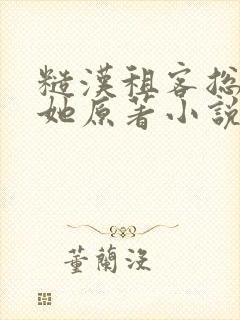 糙漢租客揔
她原著小說
董蘭沒